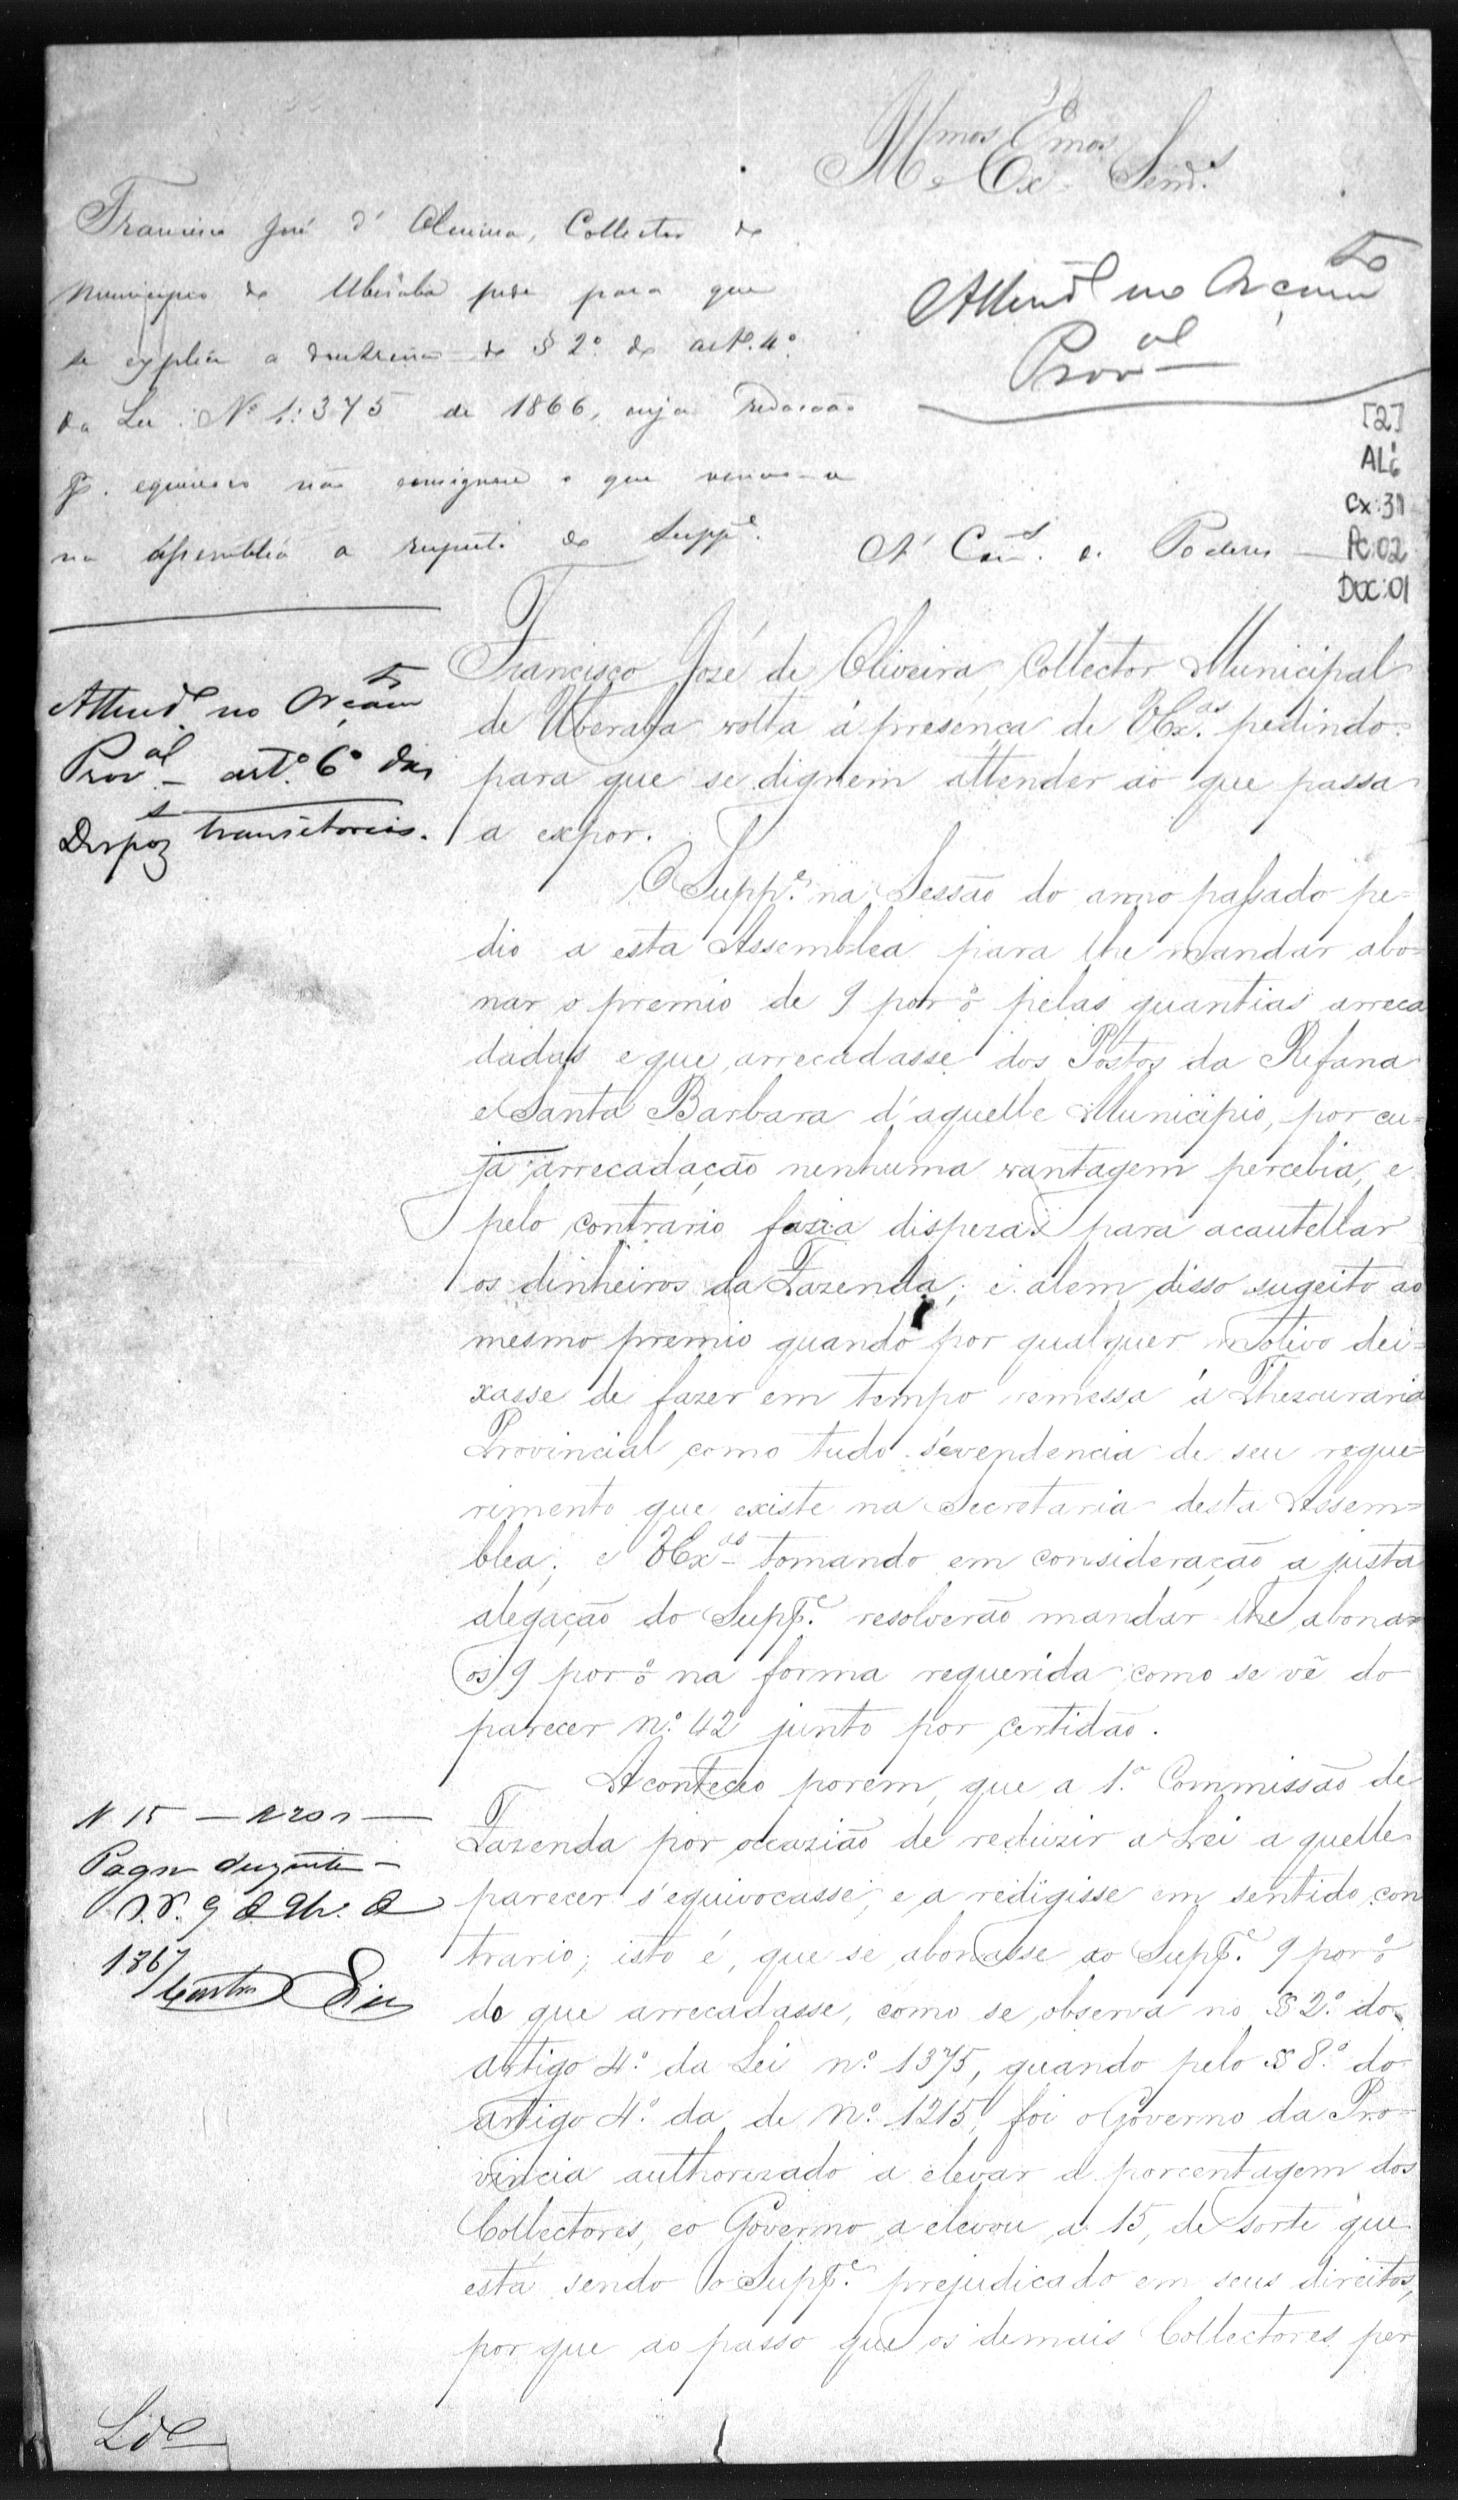 Illmos e Exmos Senrs
Francisco José d'Oliveira, Collector do
Municipio de Uberaba pede para que
se explique a doutrina do § 2º do artº. 4º
da Lei Nº 1:375 de 1866, cuja redacção
pr. equivoco não consignou o que venceu-se
na Assemblea a respeito do Suppe.
Attendl no Orçamto
Proval
[2]
AL6
Cx:31
PC:02
DOC:01
A' Com. de Poderes
Attendl no Orçamto
Proval — artº. 6º das
Dispozs transitorias.
Francisco José de Oliveira, Collector Municipal
de Uberaba volta á presença de VExas. pedindo
para que se dignem attender ao que passa
a expor.
O Suppe. na Sessão do anno passado pe=
dio a esta Assemblea para lhe mandar abo=
nar o premio de 9 por % pelas quantias arreca
dadas e que arrecadasse dos Postos da Rifana
e Santa Barbara d'aquelle Municipio, por cu=
ja arrecadação nenhuma vantagem percebia, e
pelo contrario fazia dispezas para acautellar
os dinheiros da Fazenda; e alem disso sugeito ao
mesmo premio quando por qualquer motivo dei=
xasse de fazer em tempo remessa á Thesouraria
Provincial como tudo s'evendencia de seu reque=
rimento que existe na Secretaria desta Assem=
blea; e VExas tomando em consideração a justa
alegação do Suppe. resolverão mandar lhe abonar
os 9 por % na forma requerida como se vê do
parecer nº. 42 junto por certidão.
Aconteceo porem, que a 1ª. Commissão de
Fazenda por occazião de reduzir a Lei a quelle
parecer s'equivocasse, e a redigisse em sentido con
trario; isto é, que se abonasse ao Suppe. 9 por %
do que arrecadasse, como se observa no § 2º. do
artigo 4º. da Lei nº. 1375, quando pelo § 8º. do
artigo 4º. da de Nº. 1215, foi o Governo da Pro=
vincia authorizado a elevar a porcentagem dos
Collectores, e o Governo a elevou a 15, de sorte que
está sendo o Suppe. prejudicado em seus direitos,
por que ao passo que os demais Collectores per
N 15 — R 200 —
Pagou duzentos
O.P. 9 de de
1867
Castro